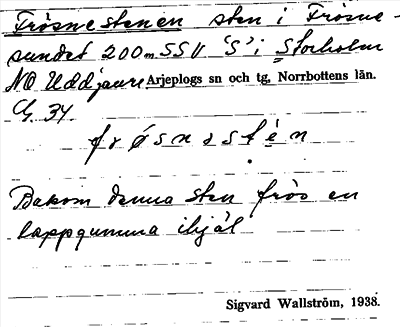 Frösnestenen sten i Frösne-
sundet 200 m SSV 'S' i Storholm
NO Uddjaure Arjeplogs sn och tg, Norrbottens län.
34
frǿsnəstén
Bakom denna sten frös en
lappgumma ihjäl
Sigvard Wallström, 1938.